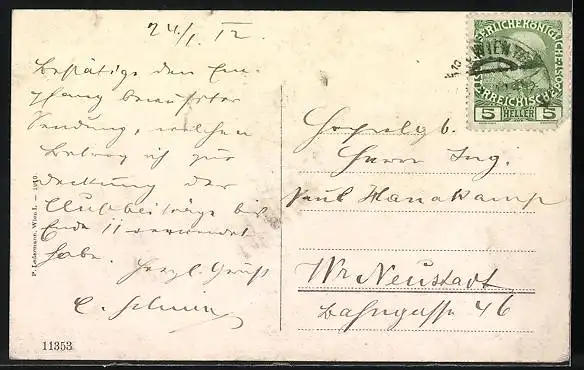 24/I. 12.
Bestätige den Em-
pfang bewußter
Sendung, welchen
Betrag ich zur
Deckung der
Clubbeiträge bis
Ende 11 verwendet
habe.
Herzl. Gruß
P. Ledermann, Wien I. — 1910.
11353
Hochwlgb.
Herrn Ing.
Paul Hanakamp
Wr Neustadt
Bahngasse 46
WIEN
5 HELLER 5